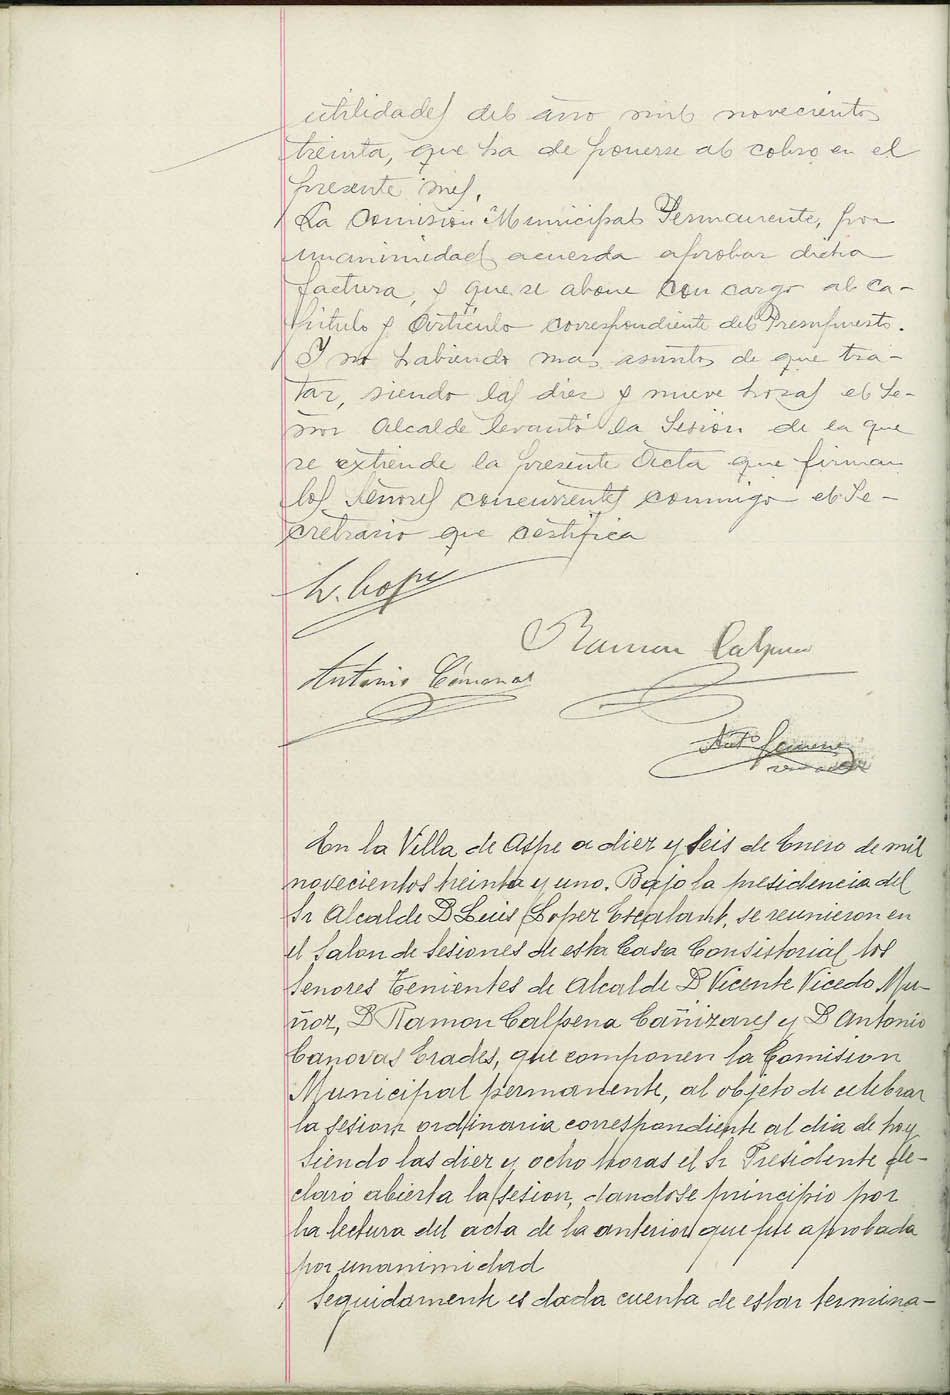 utilidades del año mil novecientos
treinta, que ha de ponerse al cobro en el
presente mes.
La Comisión Municipal Permanente, por
unanimidad acuerda aprobar dicha
factura, y que se abone con cargo al Ca-
pitulo y Artículo correspondiente del Presupuesto.
Y no habiendo mas asuntos de que tra-
tar, siendo las diez y nueve horas el Se-
ñor Alcalde levantó la Sesión de la que
se extiende la presente Acta que firman
los Señores concurrentes conmigo el Se-
cretrario que certifica
L. Lopez
Ramon Calpena
Antonio Cánovas
Anto
En la Villa de Aspe a diez y seis de Enero de mil
novecientos treinta y uno. Bajo la presidencia del
Sr Alcalde D Luis Lopez Escalant, se reunieron en
el Salon de Sesiones de esta Casa Consistorial los
Senores Tenientes de Alcalde D Vicente Vicedo Mu-
ñoz, D Ramon Calpena Cañizares y D Antonio
Canovas Erades, que componen la Comision
Municipal permanente, al objeto de celebrar
la sesion ordinaria correspondiente al dia de hoy
Siendo las diez y ocho horas el Sr Presidente de-
claró abierta la sesion, dandose principio por
la lectura del acta de la anterior que fue aprobada
por unanimidad
Seguidamente es dada cuenta de estar termina-